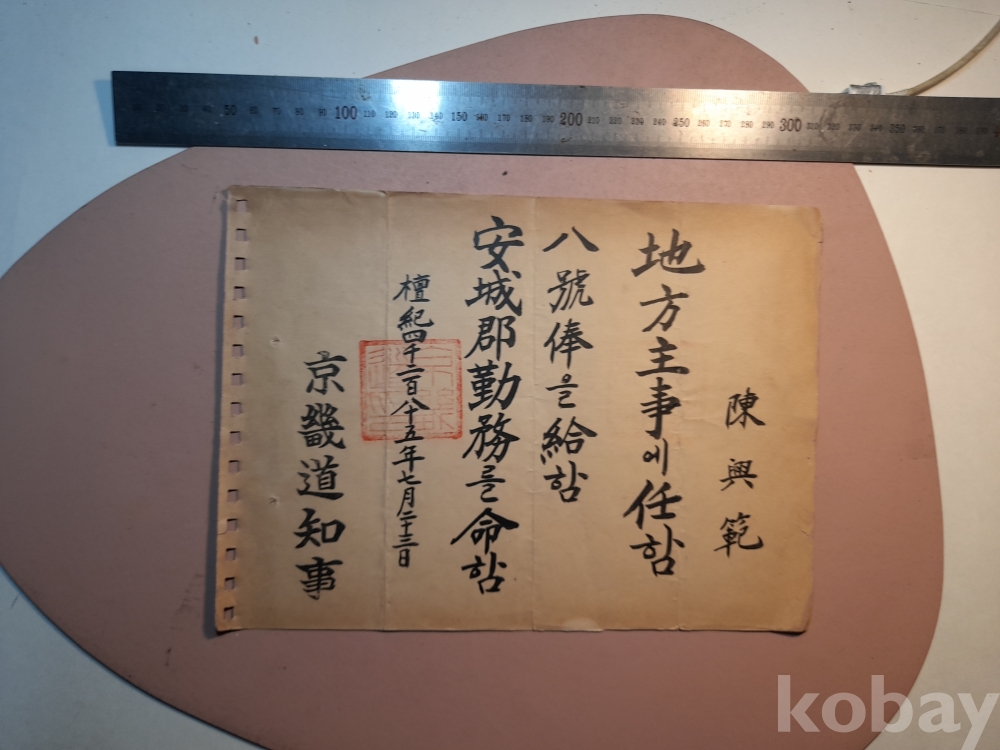 陳興範
地方主事에任함
八號俸을給함
安城郡勤務를命함
檀紀四千二百八十五年七月二十三日
京畿道知事
50 100 150 200 250 300 350
kobay